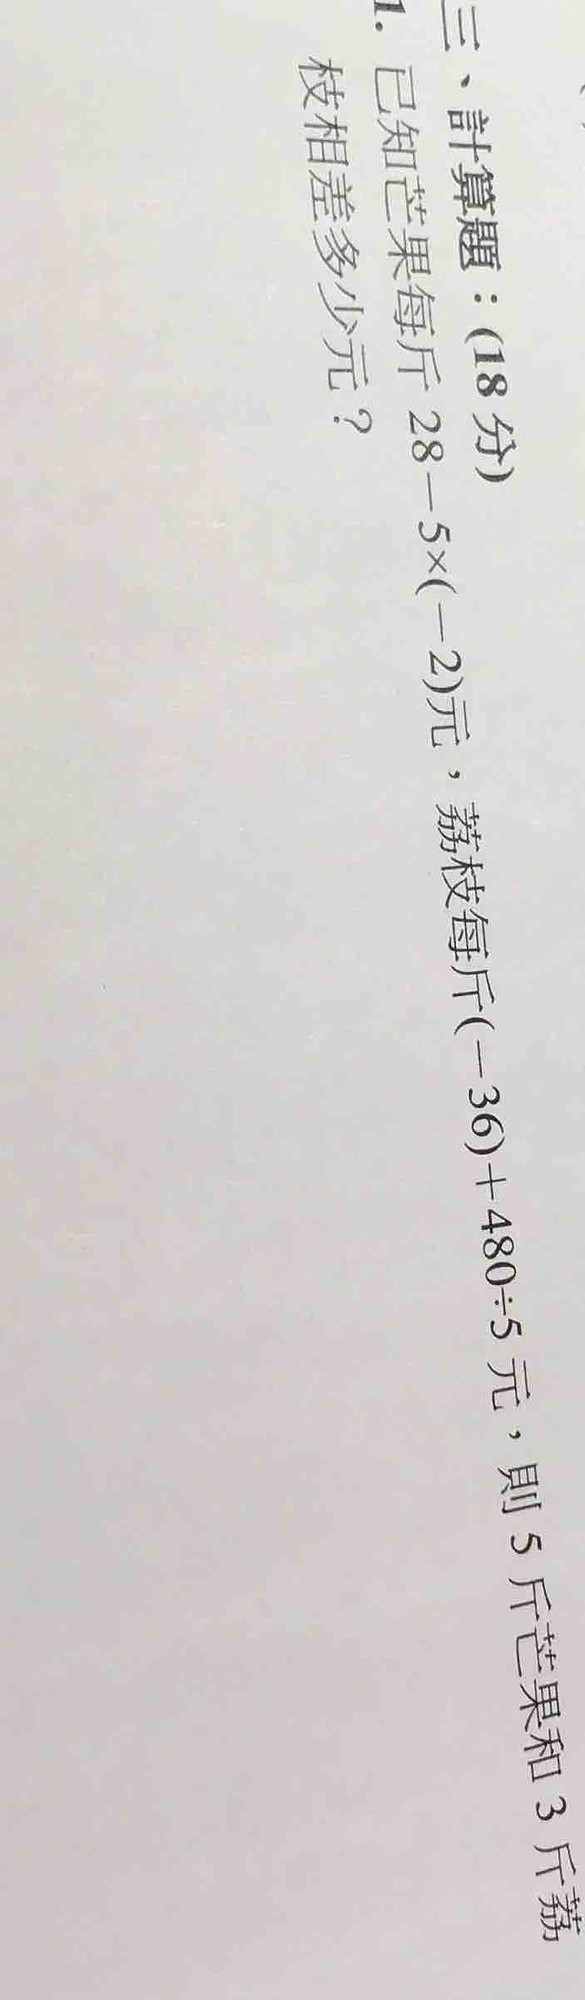 三、計算題：(18 分)
1. 已知芒果每斤 28－5×(－2)元，荔枝每斤(－36)＋480÷5 元，則 5 斤芒果和 3 斤荔
枝相差多少元？